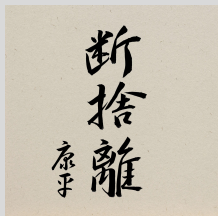 断捨離
康平